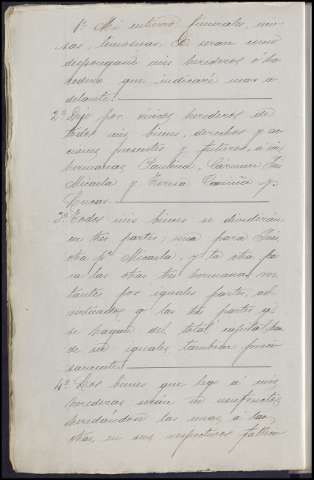 1º Mi entierro, funerales, mi-
sas, limosnas, &. serán como
dispongan mis herederos ó he-
rederas que indicaré mas a-
delante.
2º Dejo por únicos herederos de
todos mis bienes, derechos y ac-
ciones presentes y futuros, á mis
hermanas Paulina, Carmen,
Micaela y Teresa y
3º Todos mis bienes se dividirán
en tres partes; una para
otra pª Micaela, y la otra pa-
ra las otras tres hermanas res-
tantes por iguales partes, ad-
virtiendo q. las tres partes q.
se hagan del total capital, han
de ser iguales tambien
4º Los bienes que lego á mis
herederas serán en usufructo,
heredándose las unas á las
otras en sus respectivos falleci-